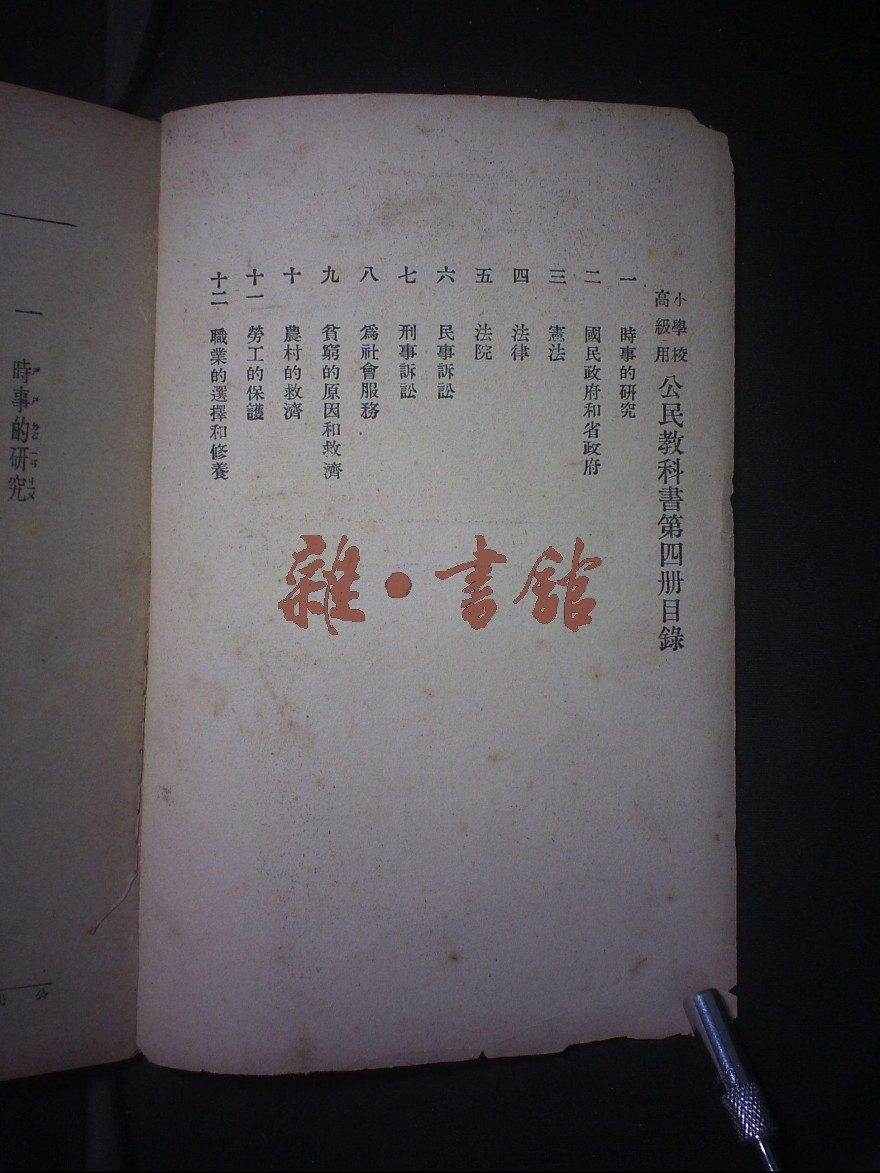 小學校
高級用
公民教科書第四册目錄
一 時事的研究
二 國民政府和省政府
三 憲法
四 法律
五 法院
六 民事訴訟
七 刑事訴訟
八 爲社會服務
九 貧窮的原因和救濟
十 農村的救濟
十一 勞工的保護
十二 職業的選擇和修養
雜·書館
一 時事的研究
公